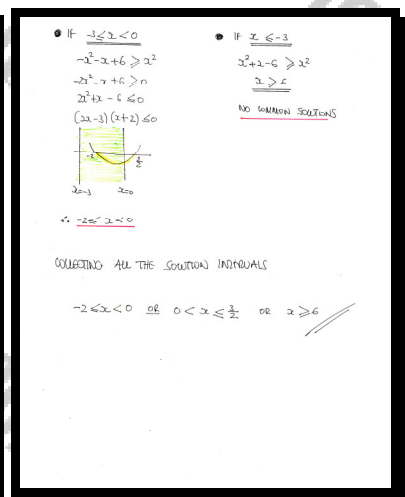 ● IF -3≤x<0
-x²-x+6 ≥ x²
-2x²-x+6 ≥ 0
2x²+x-6 ≤ 0
(2x-3)(x+2) ≤ 0
-2 3/2
x=-3 x=0
∴ -2≤x<0
● IF x ≤ -3
x²+x-6 ≥ x²
x ≥ 6
NO COMMON SOLUTIONS
COLLECTING ALL THE SOLUTION INTERVALS
-2≤x<0 OR 0<x≤3/2 OR x≥6